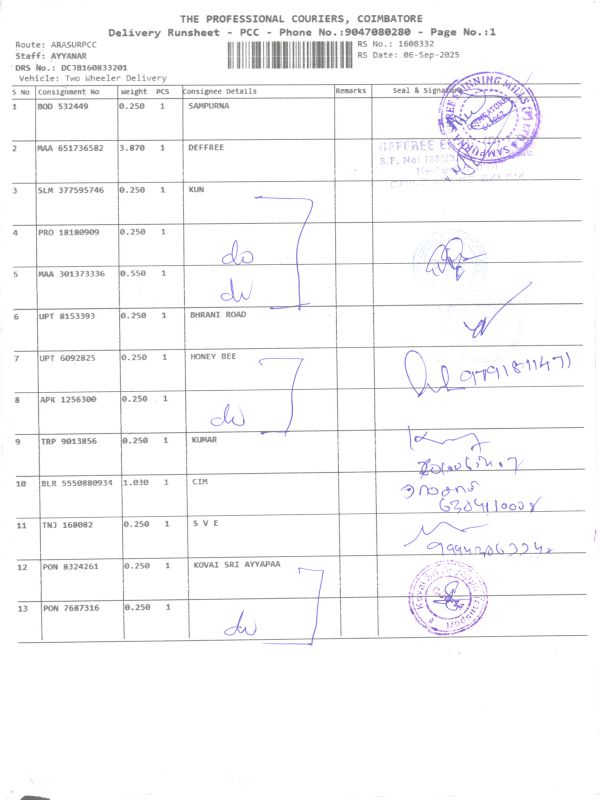 THE PROFESSIONAL COURIERS, COIMBATORE
Delivery Runsheet - PCC - Phone No.:9047080280 - Page No.:1
Route: ARASURPCC RS No.: 1608332
Staff: AYYANAR RS Date: 06-Sep-2025
DRS No.: DCJB160833201
Vehicle: Two Wheeler Delivery
S No Consignment No Weight PCS Consignee Details Remarks Seal & Signature
1 BOD 532449 0.250 1 SAMPURNA
2 MAA 651736582 3.870 1 DEFFREE
S.F. No:
3 SLM 377595746 0.250 1 KUN
4 PRO 18180909 0.250 1 do
5 MAA 301373336 0.550 1 do
6 UPT 8153393 0.250 1 BHRANI ROAD
7 UPT 6092825 0.250 1 HONEY BEE 9791811471
8 APK 1256300 0.250 1 do
9 TRP 9013856 0.250 1 KUMAR
10 BLR 5550880934 1.030 1 CIM
11 TNJ 168082 0.250 1 S V E
12 PON 8324261 0.250 1 KOVAI SRI AYYAPAA
13 PON 7687316 0.250 1 do